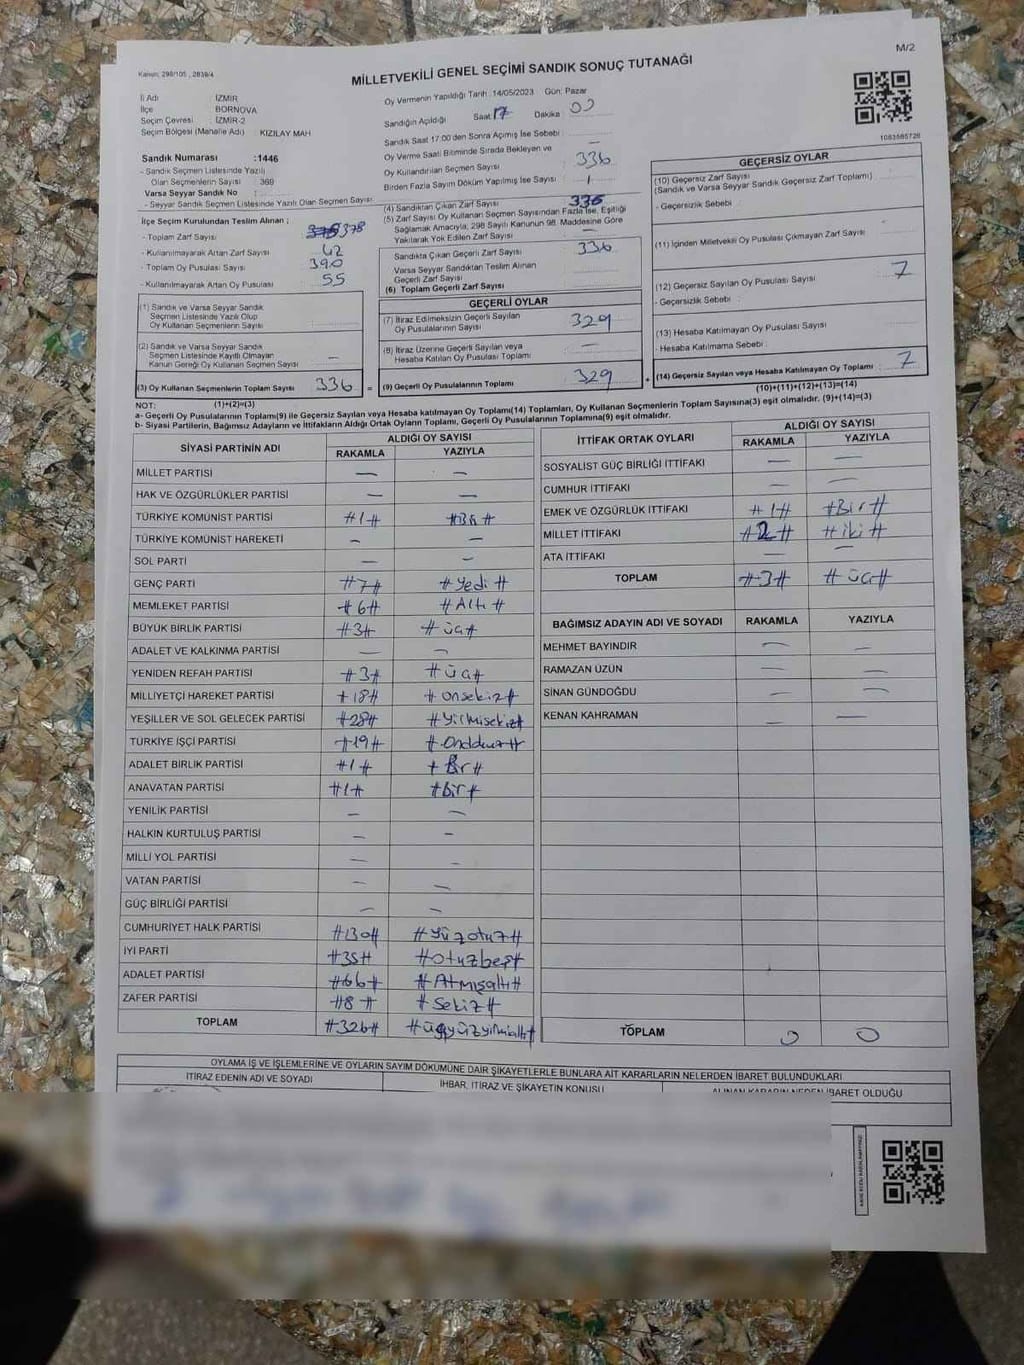 M/2
Kanun; 298/105 , 2839/4
MİLLETVEKİLİ GENEL SEÇİMİ SANDIK SONUÇ TUTANAĞI
İl Adı : İZMİR
İlçe : BORNOVA
Seçim Çevresi : İZMİR-2
Seçim Bölgesi (Mahalle Adı) : KIZILAY MAH
Oy Vermenin Yapıldığı Tarih : 14/05/2023 Gün: Pazar
Sandığın Açıldığı Saat 17 Dakika : 00
Sandık Saat 17:00'den Sonra Açılmış İse Sebebi : —
Oy Verme Saati Bitiminde Sırada Bekleyen ve
Oy Kullandırılan Seçmen Sayısı : 336
Birden Fazla Sayım Döküm Yapılmış İse Sayısı : 1
Sandık Numarası : 1446
- Sandık Seçmen Listesinde Yazılı
Olan Seçmenlerin Sayısı : 369
Varsa Seyyar Sandık No :
- Seyyar Sandık Seçmen Listesinde Yazılı Olan Seçmen Sayısı
İlçe Seçim Kurulundan Teslim Alınan ;
- Toplam Zarf Sayısı : 378
- Kullanılmayarak Artan Zarf Sayısı : 42
- Toplam Oy Pusulası Sayısı : 390
- Kullanılmayarak Artan Oy Pusulası : 55
(1) Sandık ve Varsa Seyyar Sandık
Seçmen Listesinde Yazılı Olup
Oy Kullanan Seçmenlerin Sayısı :
(2) Sandık ve Varsa Seyyar Sandık
Seçmen Listesinde Kayıtlı Olmayan
Kanun Gereği Oy Kullanan Seçmen Sayısı : —
(3) Oy Kullanan Seçmenlerin Toplam Sayısı : 336 =
(1)+(2)=(3)
(4) Sandıktan Çıkan Zarf Sayısı : 336
(5) Zarf Sayısı Oy Kullanan Seçmen Sayısından Fazla İse, Eşitliği
Sağlamak Amacıyla, 298 Sayılı Kanunun 98. Maddesine Göre
Yakılarak Yok Edilen Zarf Sayısı : —
Sandıkta Çıkan Geçerli Zarf Sayısı : 336
Varsa Seyyar Sandıktan Teslim Alınan
Geçerli Zarf Sayısı :
(6) Toplam Geçerli Zarf Sayısı :
GEÇERLİ OYLAR
(7) İtiraz Edilmeksizin Geçerli Sayılan
Oy Pusulalarının Sayısı : 329
(8) İtiraz Üzerine Geçerli Sayılan veya
Hesaba Katılan Oy Pusulası Toplamı : —
(9) Geçerli Oy Pusulalarının Toplamı : 329 +
1083585726
GEÇERSİZ OYLAR
(10) Geçersiz Zarf Sayısı
(Sandık ve Varsa Seyyar Sandık Geçersiz Zarf Toplamı) :
- Geçersizlik Sebebi :
(11) İçinden Milletvekili Oy Pusulası Çıkmayan Zarf Sayısı :
(12) Geçersiz Sayılan Oy Pusulası Sayısı : 7
- Geçersizlik Sebebi :
(13) Hesaba Katılmayan Oy Pusulası Sayısı :
- Hesaba Katılmama Sebebi :
(14) Geçersiz Sayılan veya Hesaba Katılmayan Oy Toplamı : 7
(10)+(11)+(12)+(13)=(14)
NOT:
a- Geçerli Oy Pusulalarının Toplamı(9) ile Geçersiz Sayılan veya Hesaba katılmayan Oy Toplamı(14) Toplamları, Oy Kullanan Seçmenlerin Toplam Sayısına(3) eşit olmalıdır. (9)+(14)=(3)
b- Siyasi Partilerin, Bağımsız Adayların ve İttifakların Aldığı Ortak Oyların Toplamı, Geçerli Oy Pusulalarının Toplamına(9) eşit olmalıdır.
SİYASİ PARTİNİN ADI ALDIĞI OY SAYISI
RAKAMLA YAZIYLA
MİLLET PARTİSİ — —
HAK VE ÖZGÜRLÜKLER PARTİSİ — —
TÜRKİYE KOMÜNİST PARTİSİ #1# #Bir#
TÜRKİYE KOMÜNİST HAREKETİ — —
SOL PARTİ — —
GENÇ PARTİ #7# #Yedi#
MEMLEKET PARTİSİ #6# #Altı#
BÜYÜK BİRLİK PARTİSİ #3# #üç#
ADALET VE KALKINMA PARTİSİ — —
YENİDEN REFAH PARTİSİ #3# #üç#
MİLLİYETÇİ HAREKET PARTİSİ #18# #onsekiz#
YEŞİLLER VE SOL GELECEK PARTİSİ #28# #yirmisekiz#
TÜRKİYE İŞÇİ PARTİSİ #19# #Ondokuz#
ADALET BİRLİK PARTİSİ #1# #Bir#
ANAVATAN PARTİSİ #1# #bir#
YENİLİK PARTİSİ — —
HALKIN KURTULUŞ PARTİSİ — —
MİLLİ YOL PARTİSİ — —
VATAN PARTİSİ — —
GÜÇ BİRLİĞİ PARTİSİ — —
CUMHURİYET HALK PARTİSİ #130# #Yüzotuz#
İYİ PARTİ #35# #otuzbeş#
ADALET PARTİSİ #66# #Atmışaltı#
ZAFER PARTİSİ #8# #Sekiz#
TOPLAM #326# #üçyüzyirmialtı#
İTTİFAK ORTAK OYLARI ALDIĞI OY SAYISI
RAKAMLA YAZIYLA
SOSYALİST GÜÇ BİRLİĞİ İTTİFAKI — —
CUMHUR İTTİFAKI — —
EMEK VE ÖZGÜRLÜK İTTİFAKI #1# #Bir#
MİLLET İTTİFAKI #2# #iki#
ATA İTTİFAKI — —
TOPLAM #3# #üç#
BAĞIMSIZ ADAYIN ADI VE SOYADI RAKAMLA YAZIYLA
MEHMET BAYINDIR — —
RAMAZAN ÜZÜN — —
SİNAN GÜNDOĞDU — —
KENAN KAHRAMAN — —
TOPLAM 0 0
OYLAMA İŞ VE İŞLEMLERİNE VE OYLARIN SAYIM DÖKÜMÜNE DAİR ŞİKAYETLERLE BUNLARA AİT KARARLARIN NELERDEN İBARET BULUNDUKLARI
İTİRAZ EDENİN ADI VE SOYADI İHBAR, İTİRAZ VE ŞİKAYETİN KONUSU ALINAN KARARIN NEDEN İBARET OLDUĞU